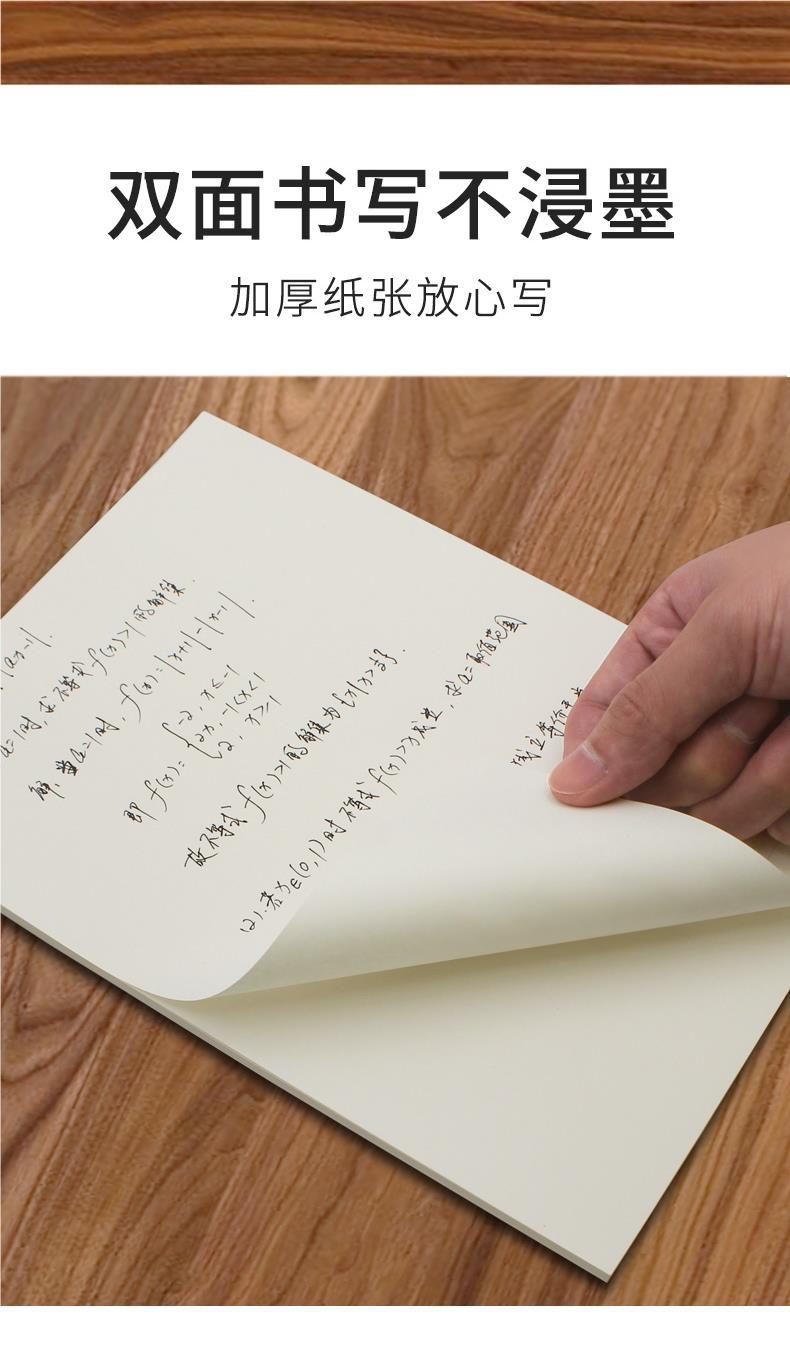 双面书写不浸墨
加厚纸张放心写
|ax-1|.
a=1时, 求不等式 f(x)>1 的解集.
解. 当a=1时, f(x)=|x+1|-|x-1|.
即 f(x)= { -2, x≤-1
2x, -1<x<1
2, x>1
故不等式 f(x)>1 的解集为{x|x>½}.
(2).若x∈(0,1)时不等式 f(x)>x成立, 求a=取值范围
成立等价于当